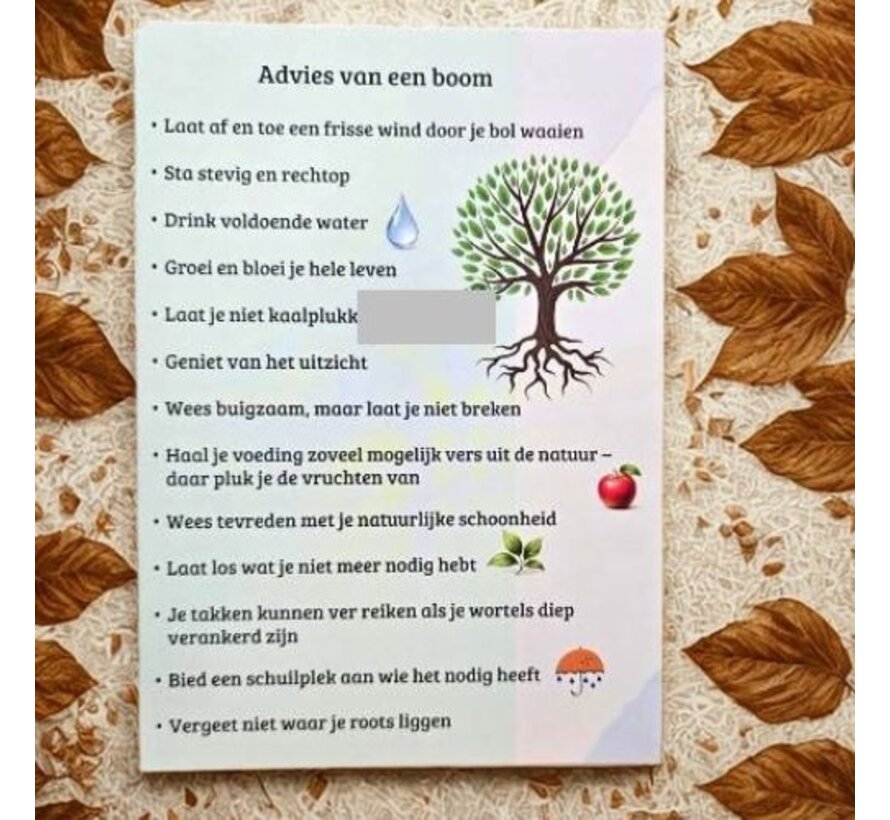 Advies van een boom
• Laat af en toe een frisse wind door je bol waaien
• Sta stevig en rechtop
• Drink voldoende water
• Groei en bloei je hele leven
• Laat je niet kaalplukk
• Geniet van het uitzicht
• Wees buigzaam, maar laat je niet breken
• Haal je voeding zoveel mogelijk vers uit de natuur –
daar pluk je de vruchten van
• Wees tevreden met je natuurlijke schoonheid
• Laat los wat je niet meer nodig hebt
• Je takken kunnen ver reiken als je wortels diep
verankerd zijn
• Bied een schuilplek aan wie het nodig heeft
• Vergeet niet waar je roots liggen